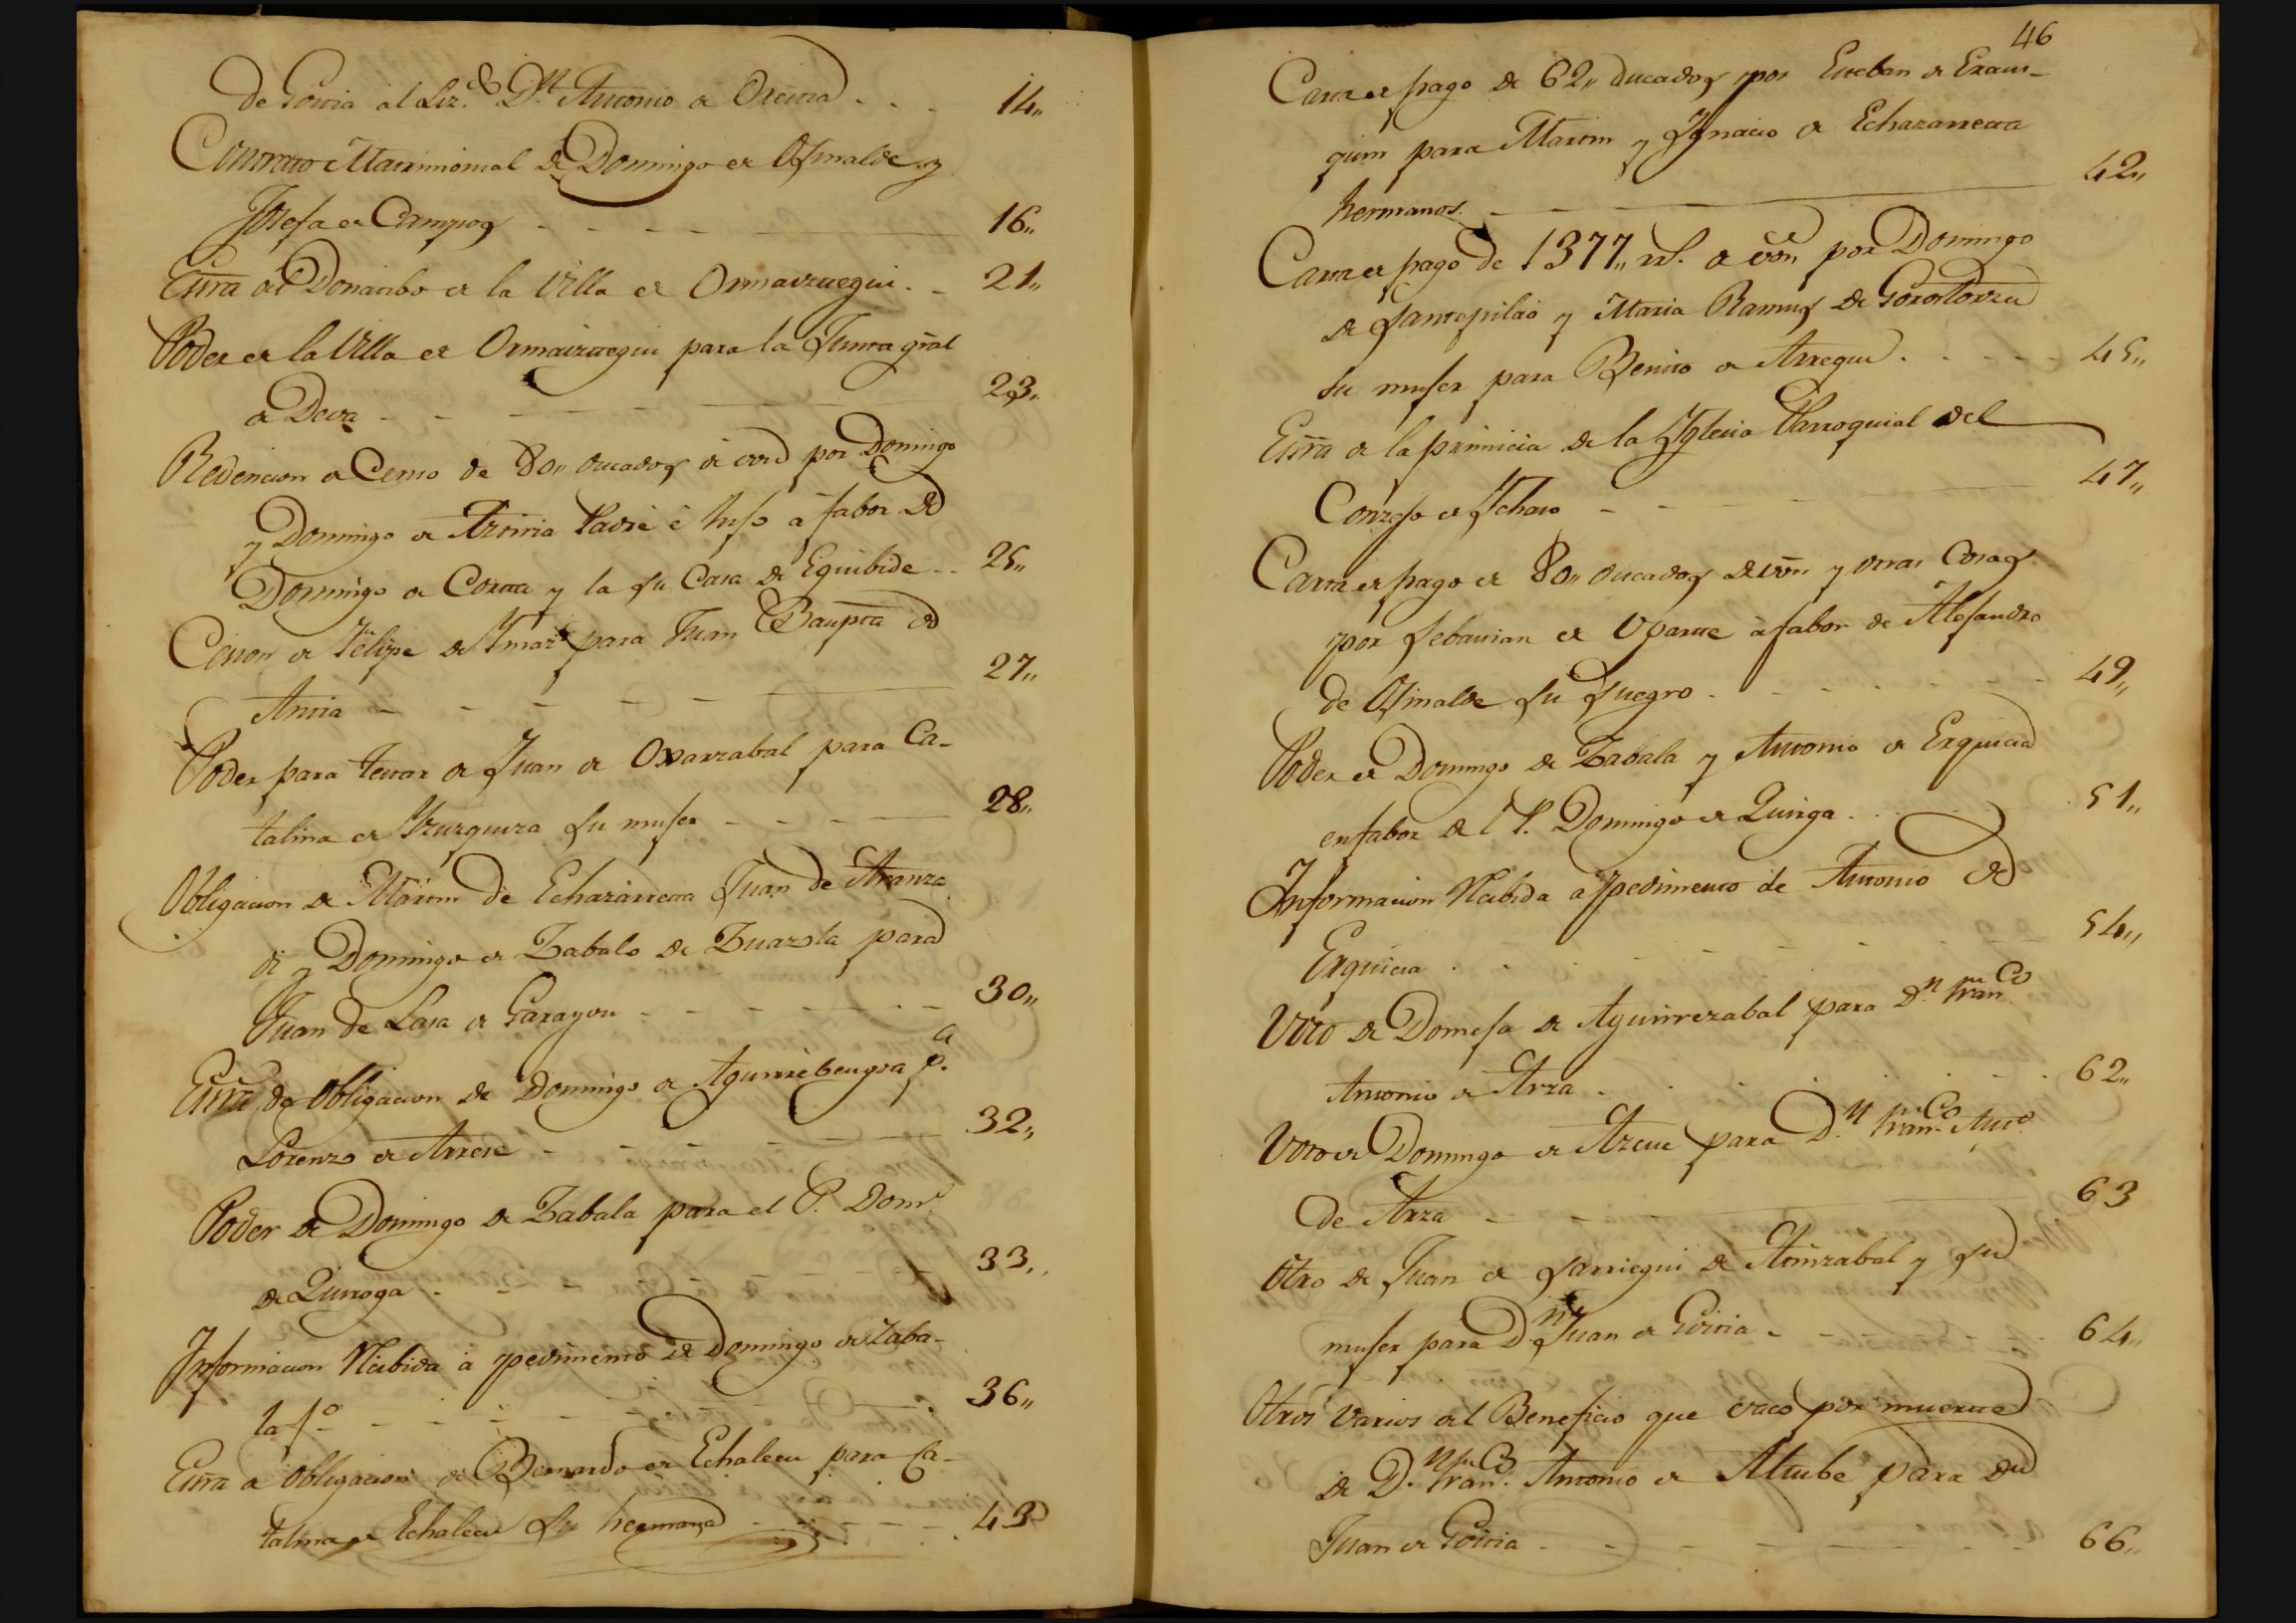 de Goitia al Liz.do Dn. Antonio de Orcina 14,,
Contrato Matrimonial de Domingo de Osinalde y
Josefa de Campos 16,,
Escra de Donatibo de la Villa de Ormaiztegui 21,,
Poder de la Villa de Ormaiztegui para la Junta gral
de Deva 23,,
Redencion de Censo de 80,, ducados de von por Domingo
y Domingo de Aztiria Padre è hijo à fabor de
Domingo de Cortta y la su Casa de Eguibide 25,,
Cesion de Felipe de para Juan Baupta de
27,,
Poder para testar de Juan de Oxarzabal para Ca-
talina de Yzurquiza su muger 28,,
Obligacion de Martin de Echazarreta Juan de Aranza
di y Domingo de Zabalo de Zuazola para
Juan de Lasa de Garayou 30,,
Escra de Obligacion de Domingo de Aguirrebengoa p.a
Lorenzo de Arrese 32,,
Poder de Domingo de Zabala para el P. Domo
de Quiroga 33,,
Informacion Recibida à pedimento de Domingo de Zaba-
la fo 36,,
Escra de obligacion de Bernardo de Echalecu para Ca-
talina de Echalecu su hermana 43
46
Carta de pago de 62,, ducados por Esteban de Eraus-
quin para Martin y Ygnacio de Echazarreta
hermanos 42,,
Carta de pago de 1377,, rs. de von por Domingo
de Santopilao y Maria Ramus de Gorostorzu
su muger para Benito de Arregui 45,,
Escra de la primicia de la Yglesia Parroquial del
Conzejo de Ychaso 47,,
Carta de pago de 80,, ducados de von y otras Cosas
por Sebastian de Ugarte à fabor de Alejandro
de Osinalde su Suegro 49,,
Poder de Domingo de Zabala y Antonio de Ezquicia
en fabor del P. Domingo de Quiroga 51,,
Informacion Recibida a pedimento de Antonio de
Ezquicia 54,,
Voto de Domeja de Aguirrezabal para Dn. Franco
Antonio de Arza 62,,
Voto de Domingo de Azcue para Dn. Franco Anto
de Arza 63
Otro de Juan de Sarriegui de Atinzabal y su
muger para Dn. Juan de Goitia 64,,
Otros Varios al Beneficio que vacò por muerte
de Dn. Franco. Antonio de Altube para Dn
Juan de Goitia 66,,